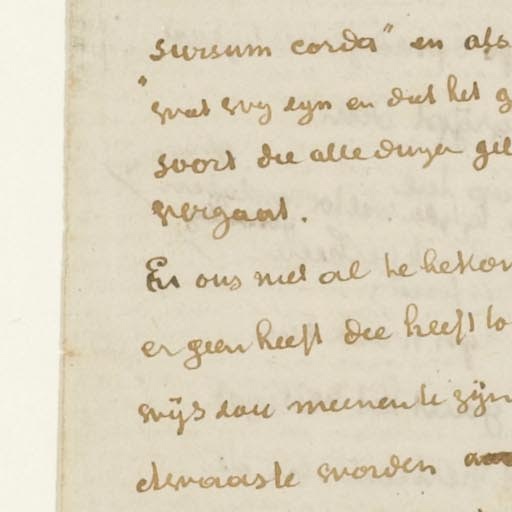 sursum corda" en als
"wat wy zyn en dat het g
soort die alle dingen gel
vergaat.
En ons niet al te bekom
er geen heeft die heeft to
wijs zou meenen te zijn
dwaaste worden